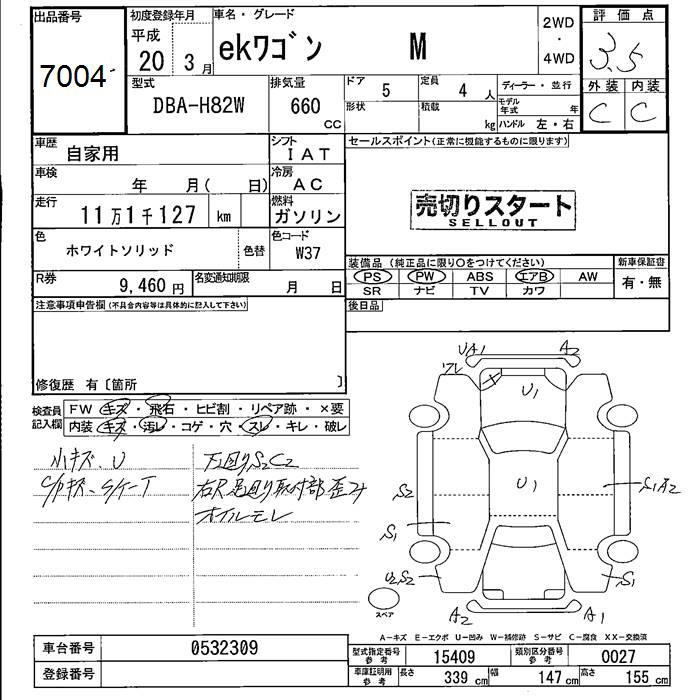 出品番号 初度登録年月 車名・グレード 2WD ・ 4WD 評価点
7004 平成 20 3月 ekワゴン M 3.5
型式 排気量 ドア 5 定員 4人 ディーラー・並行 外装 内装
DBA-H82W 660 CC 形状 積載 kg モデル年式 年 C C
ハンドル 左・右
車歴 自家用 シフト IAT セールスポイント(正常に機能するものに限ります)
車検 年 月( 日) 冷房 AC
走行 11万1千127 km 燃料 ガソリン 売切りスタート
SELLOUT
色 ホワイトソリッド 色替 色コード W37
装備品(純正品に限り○をつけてください) 新車保証書
R券 9,460円 名変通知期限 月 日 PS PW ABS エアB AW 有・無
SR ナビ TV カワ
注意事項申告欄(不具合内容等は具体的に記入して下さい) 後日品
修復歴 有〔箇所 〕
検査員記入欄 FW キズ・飛石・ヒビ割・リペア跡・×要
内装 キズ・汚レ・コゲ・穴・スレ・キレ・破レ
小キズ、U 下廻りS2C2
右R足廻り取付部歪み
オイルモレ
UA1 A2
ワレ U1
S2 U1 S1A2
S1
U2S2 S1
スペア A2 A1
A-キズ E-エクボ U-凹み W-補修跡 S-サビ C-腐食 XX-交換済
車台番号 0532309 型式指定番号 参考 15409 類別区分番号 参考 0027
登録番号 車庫証明用 参考 長さ 339cm 幅 147cm 高さ 155cm